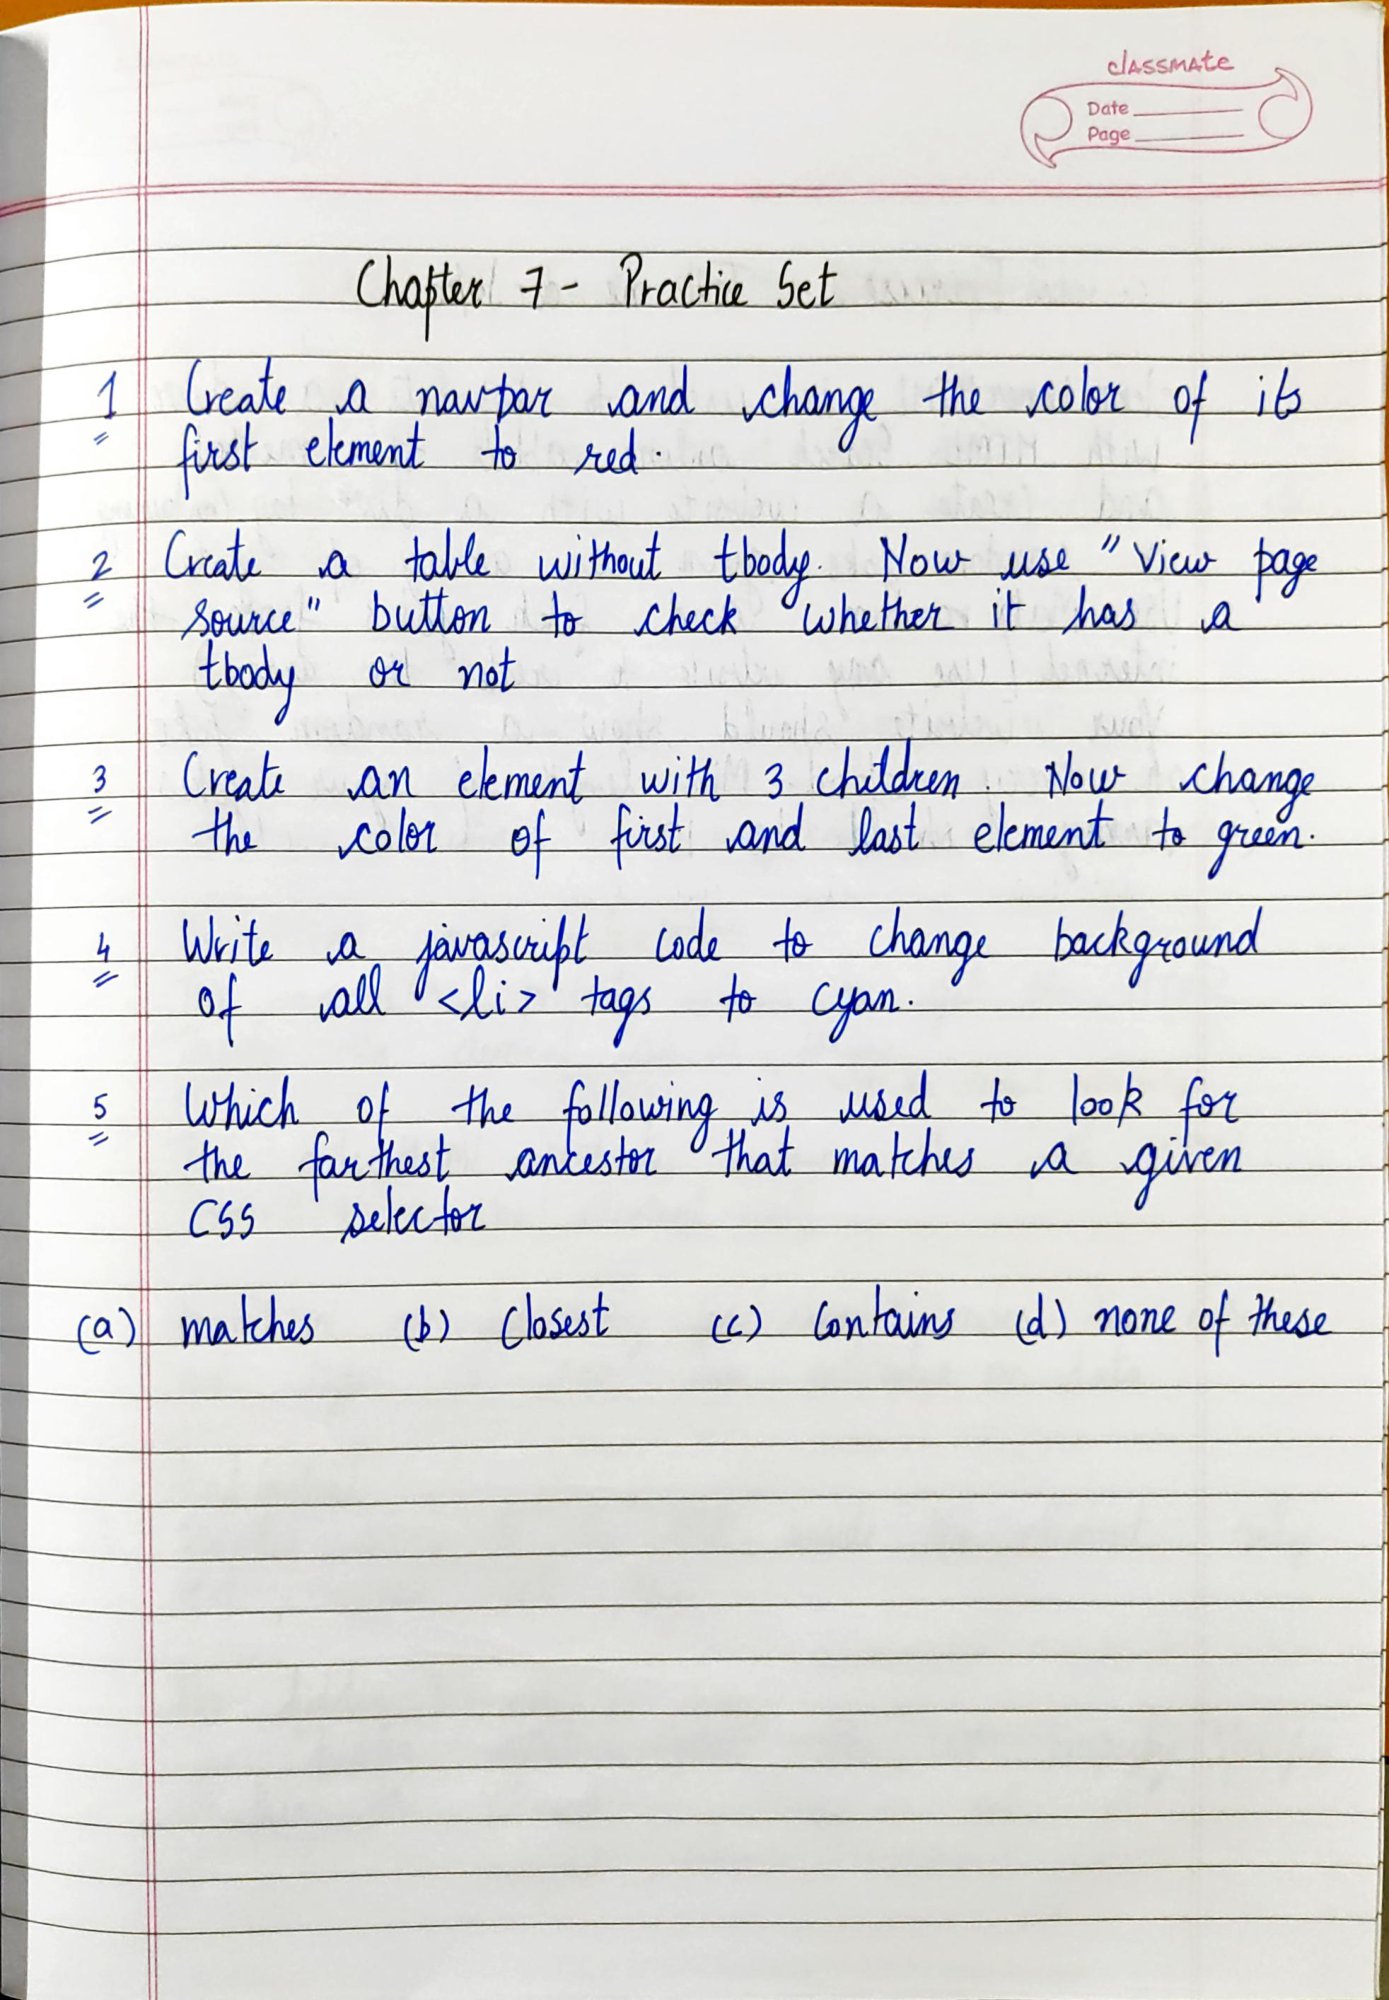 classmate
Date
Page
Chapter 7 - Practice Set
1 Create a navbar and change the color of its
first element to red.
2 Create a table without tbody. Now use "View page
source" button to check whether it has a
tbody or not
3 Create an element with 3 children. Now change
the color of first and last element to green.
4 Write a javascript code to change background
of all <li> tags to cyan.
5 Which of the following is used to look for
the farthest ancestor that matches a given
CSS selector
(a) matches (b) closest (c) contains (d) none of these